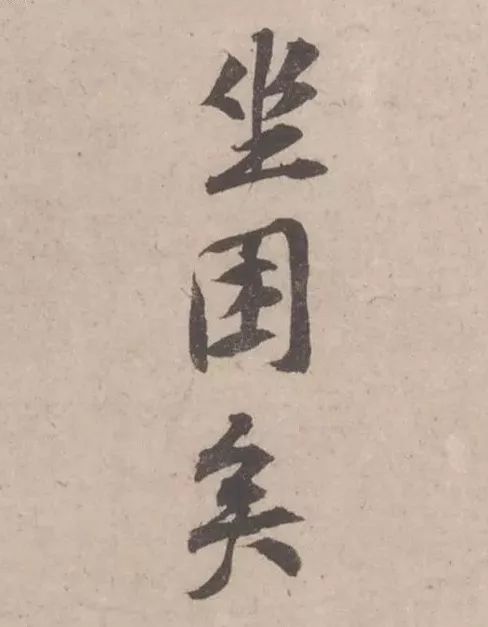 坐困矣